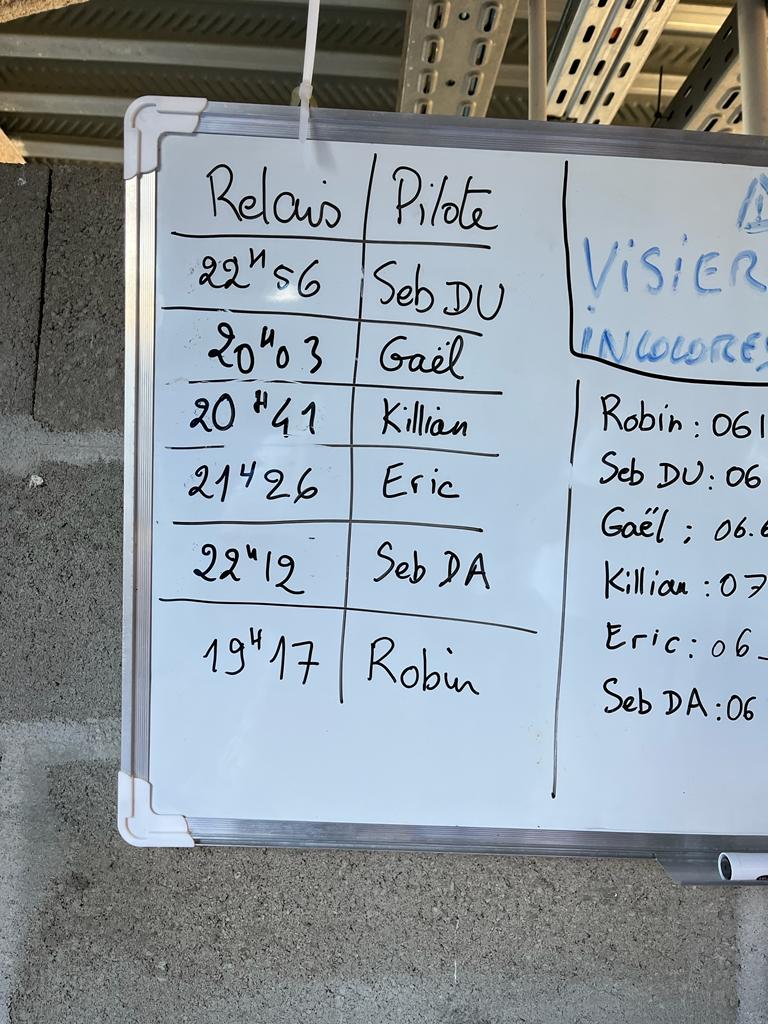 Relais Pilote
22H56 Seb DU
20H03 Gaël
20H41 Killian
21H26 Eric
22H12 Seb DA
19H17 Robin
VISIER
INCOLORES
Robin : 061
Seb DU : 06
Gaël : 06.6
Killian : 07
Eric : 06
Seb DA : 06